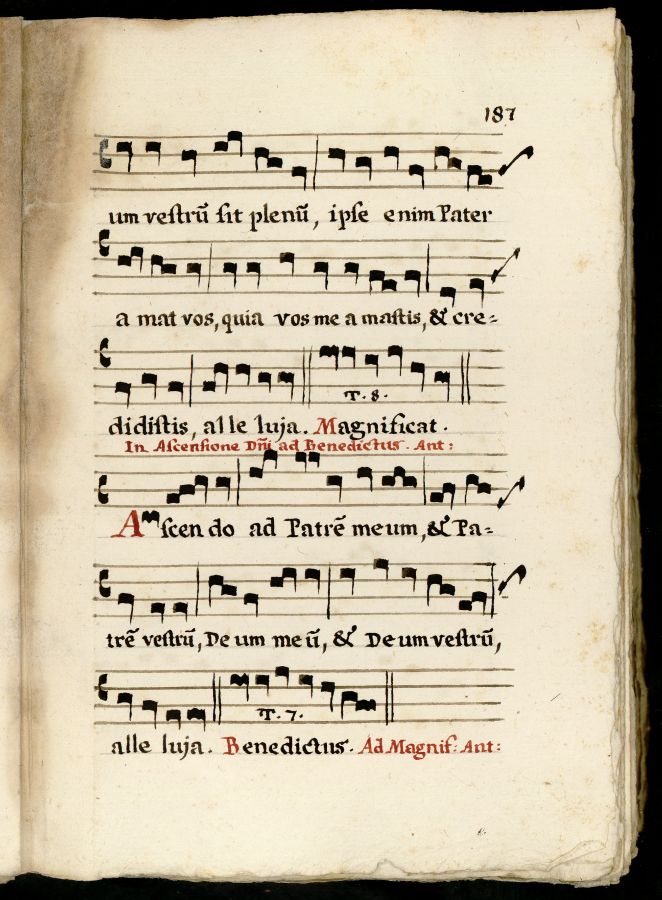 187
um vestrū sit plenū, ipse enim Pater
a mat vos, quia vos me a mastis, & cre=
T. 8.
didistis, alle luja. Magnificat.
In Ascensione Dn̄i ad Benedictus. Ant:
Ascen do ad Patrē meum, & Pa=
trē vestrū, De um me ū, & Deum vestrū,
T. 7.
alle luja. Benedictus. Ad Magnif: Ant: